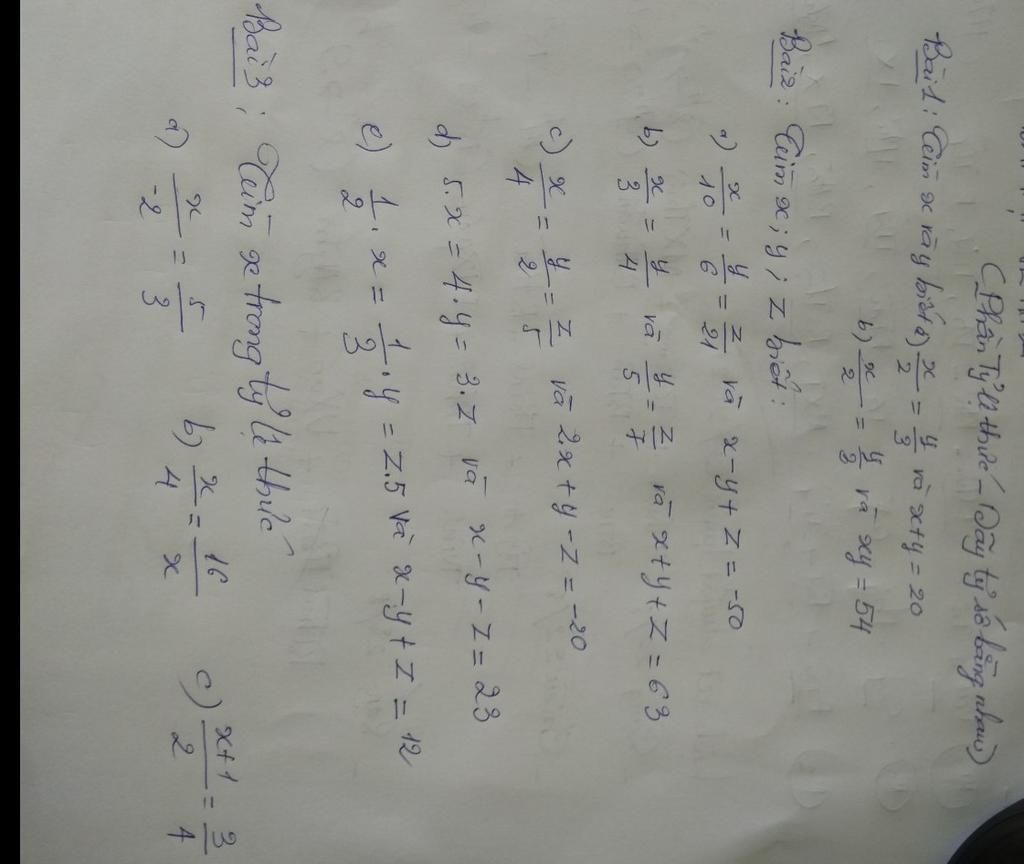 (Phần Tỷ lệ thức - Dãy tỷ số bằng nhau)
Bài 1: Tìm x và y biết a) x/2 = y/3 và x+y = 20
b) x/2 = y/3 và xy = 54
Bài 2: Tìm x; y; z biết:
a) x/10 = y/6 = z/21 và x-y+z = -50
b) x/3 = y/4 và y/5 = z/7 và x+y+z = 63
c) x/4 = y/2 = z/5 và 2x+y-z = -20
d) 5.x = 4.y = 3.z và x-y-z = 23
e) 1/2.x = 1/3.y = z.5 và x-y+z = 12
Bài 3: Tìm x trong tỷ lệ thức
a) x/-2 = 5/3 b) x/4 = 16/x c) x+1/2 = 3/4